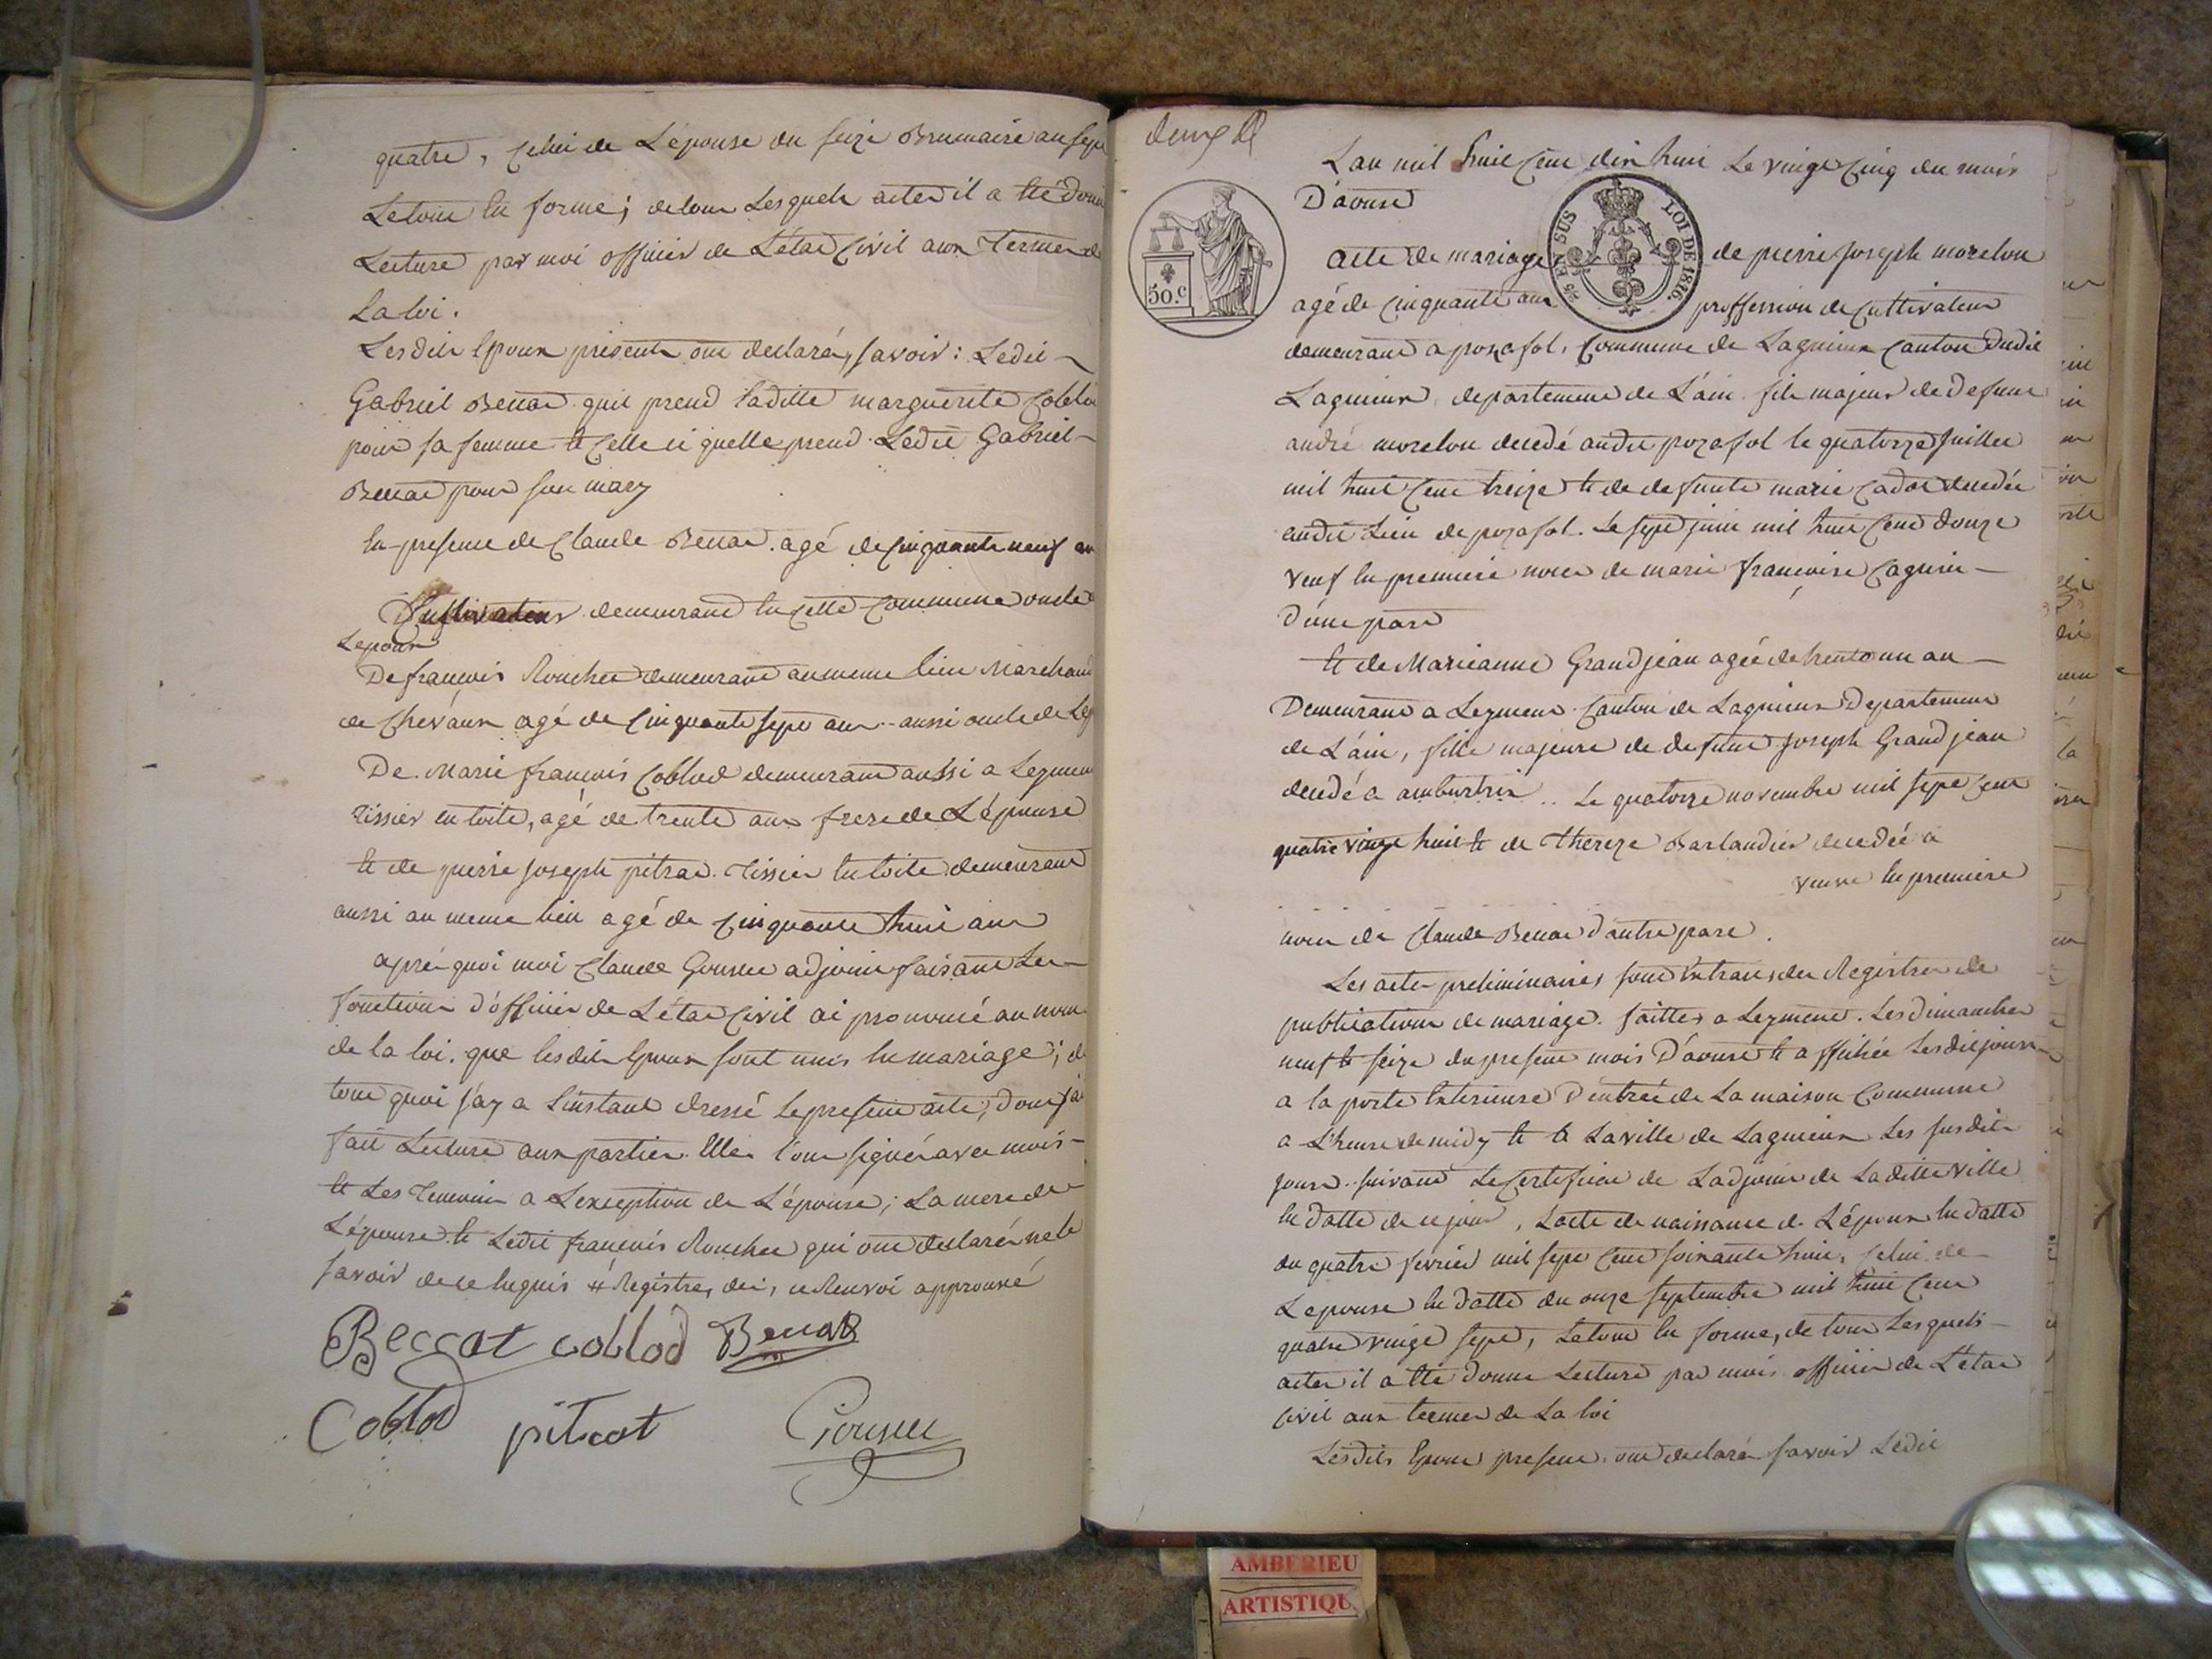 quatre, celui de L'épouse du seize Brumaire an sept
Letout en forme; de tous Lesquels actes il a été donné
Lecture par moi officier de L'état Civil aux termes de
La loi.
Lesdits Epoux présents ont declarés, savoir: Ledit
Gabriel Beccat quil prend Laditte marguerite Coblod
pour sa femme et celle ci quelle prend Ledit Gabriel
Beccat pour son mary
En presence de Claude Beccat agé de cinquante neuf an
Cultivateur demeurand en cette Commune oncle
Lepoux
De françois Rouchet demeurand aumeme lieu Marchand
de chevaux agé de cinquante sept ans aussi oncle de Lep
De Marie françois Coblod demeurand aussi a Leyment
tissier en toile, agé de trente ans frere de L'épouse
et de pierre Joseph pitrat Tissier en toile demeurand
aussi au meme lieu agé de cinquante huit ans
aprés quoi moi Claude adjoint faisant Les
fonctions d'officier de L'état Civil ai prononcé au nom
de la loi. que lesdits Epoux sont unis en mariage; de
tout quoi j'ay a L'instant dressé Le present acte, dont j'ai
fait Lecture aux parties Elles l'ont signés avec mois
et Les Temoins a L'exception de L'épouse; La mere de
L'épouse et Ledit françois Rouchet qui ont declarés ne le
savoir de ce Enquis # Registres des, ce Renvoi approuvé
Beccat coblod Beccat
Coblod pitrat
L'an mil huit Cent dix huit Le vingt cinq du mois
D'aoust
50.c
EN SUS LOI DE 1816.
acte de mariage de pierre Joseph morelon
agé de cinquante ans proffession de cultivateur
demeurand a pozafol, Commune de Lagnieux Canton dudit
Lagnieux departement de L'ain fils majeur de defunt
andré morelon decedé audit pozafol le quatorze Juillet
mil huit Cent treize et de defunte marie Cadot decedée
audit Lieu de pozafol. Le sept juin mil huit Cent douze
veuf en premiere noces de marie françoise Cagnin
D'une part
et de Marianne Grandjean agée de trente un an
Demeurand a Leyment Canton de Lagnieux Departement
de L'ain, fille majeure de defunt Joseph Grandjean
decedé a ambutrix .. Le quatorze novembre mil sept cent
quatre vingt huit et de Thereze Barlandier decedée a
veuve en premiere
noces de Claude Beccat d'autre part.
Les actes preliminaires sont Extraits des Registres de
publications de mariage. faittes a Leyment. Les dimanches
neuf et seize du present mois D'aoust et affichée Lesdit jours
a la porte Exterieure D'entrée de La maison Commune
a L'heure de midy et a Laville de Lagnieux Les susdits
jours suivand Le Certificat de Ladjoint de Laditte ville
En datte de ce jour, Lacte de naissance de L'époux En datte
du quatre fevrier mil sept Cent soixante huit, celui de
Lepouse En datte du onze septembre mil huit Cent
quatre vingt sept, Letout En forme, de tous Lesquels
actes il a été donné Lecture par mois officier de L'etat
Civil aux termes de La loi
Lesdits Epoux present ont declarés savoir Ledit
AMBERIEU
ARTISTIQU